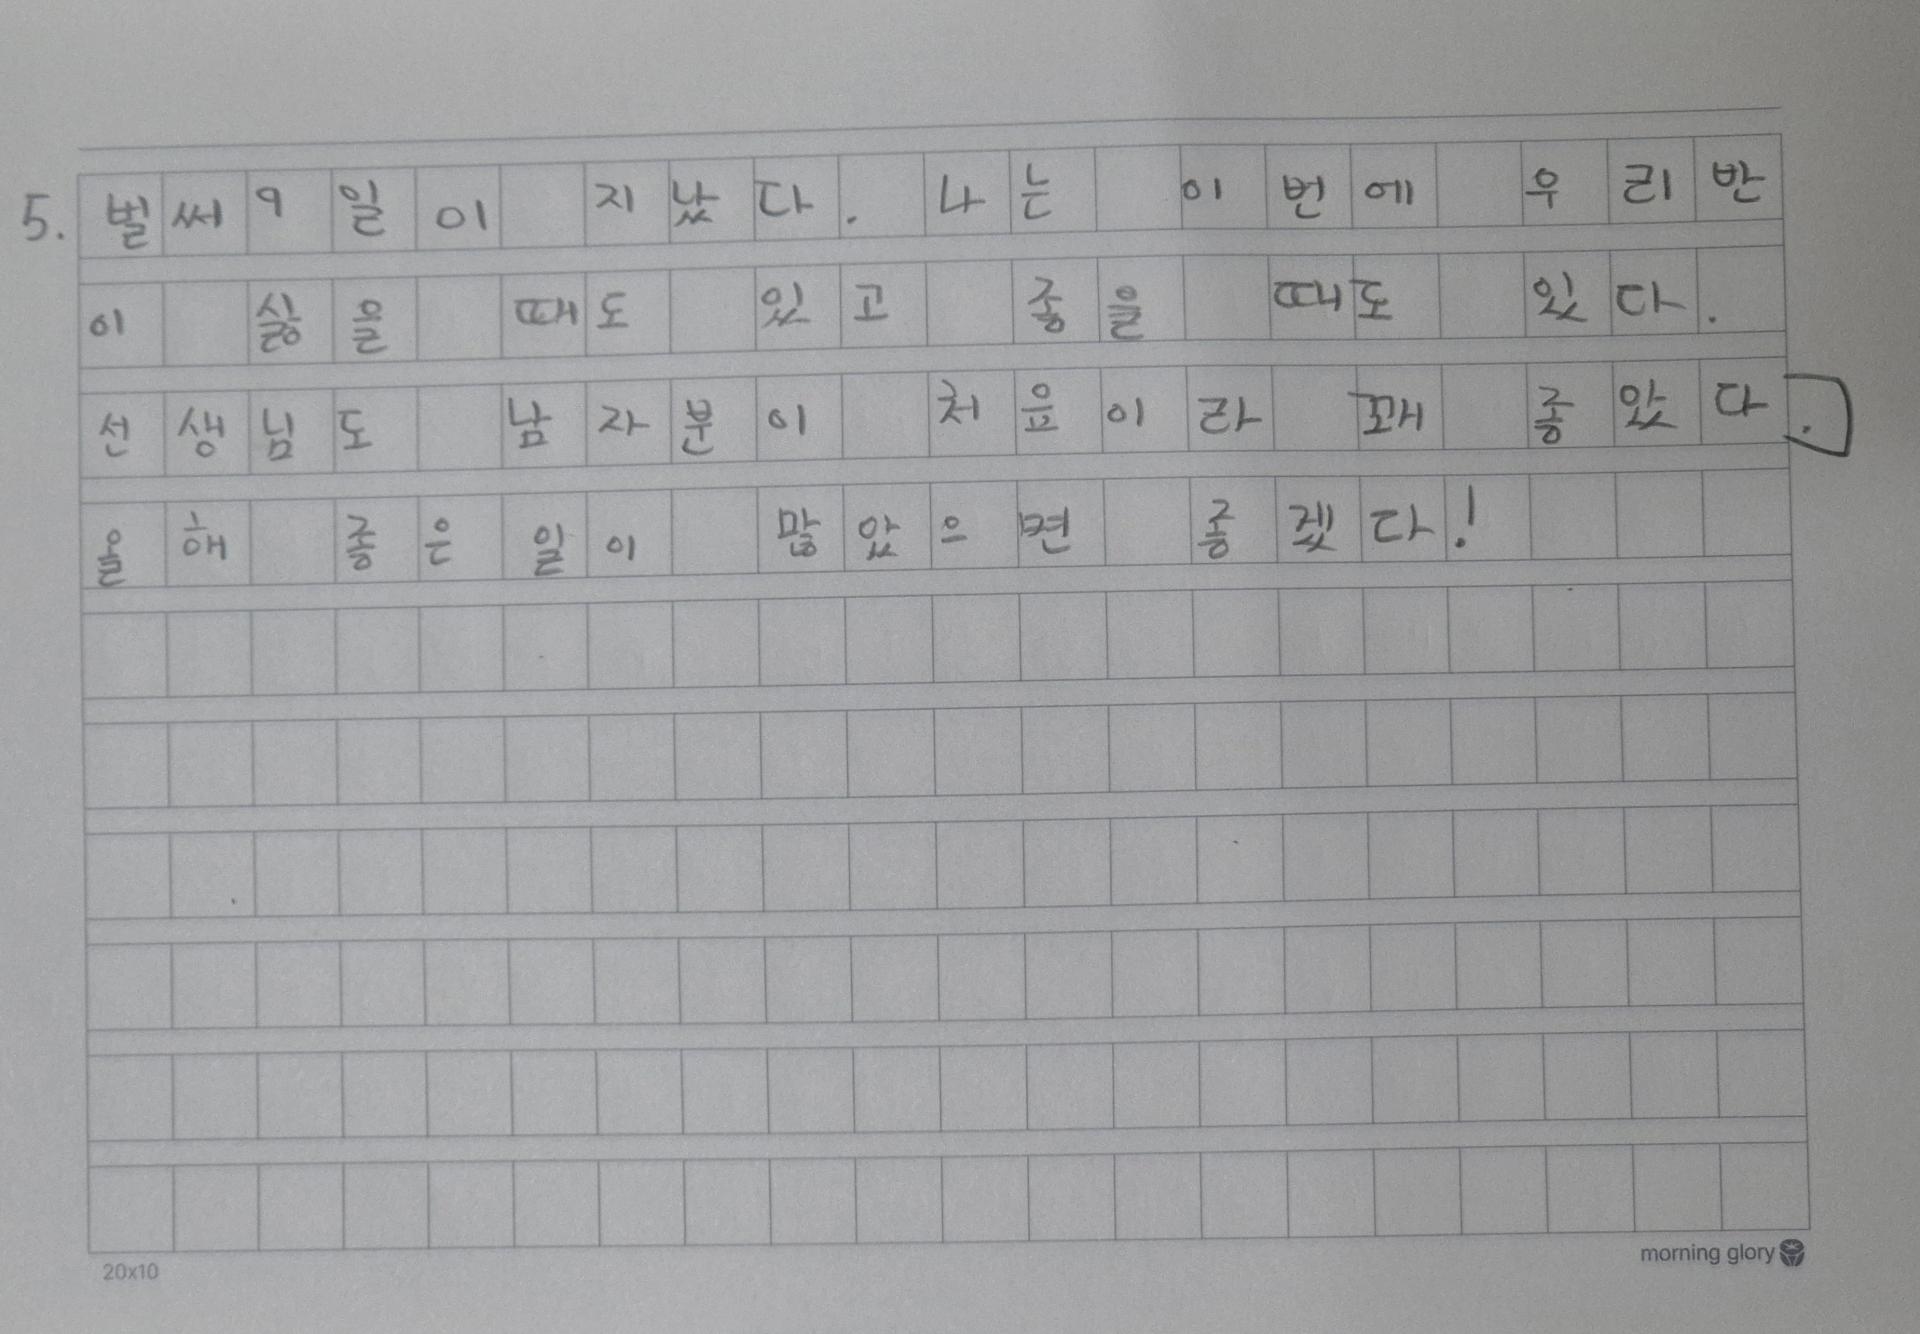 5. 벌써 9일이 지났다. 나는 이번에 우리반
이 싫을 때도 있고 좋을 때도 있다.
선생님도 남자분이 처음이라 꽤 좋았다.
올해 좋은일이 많았으면 좋겠다!
20x10 morning glory